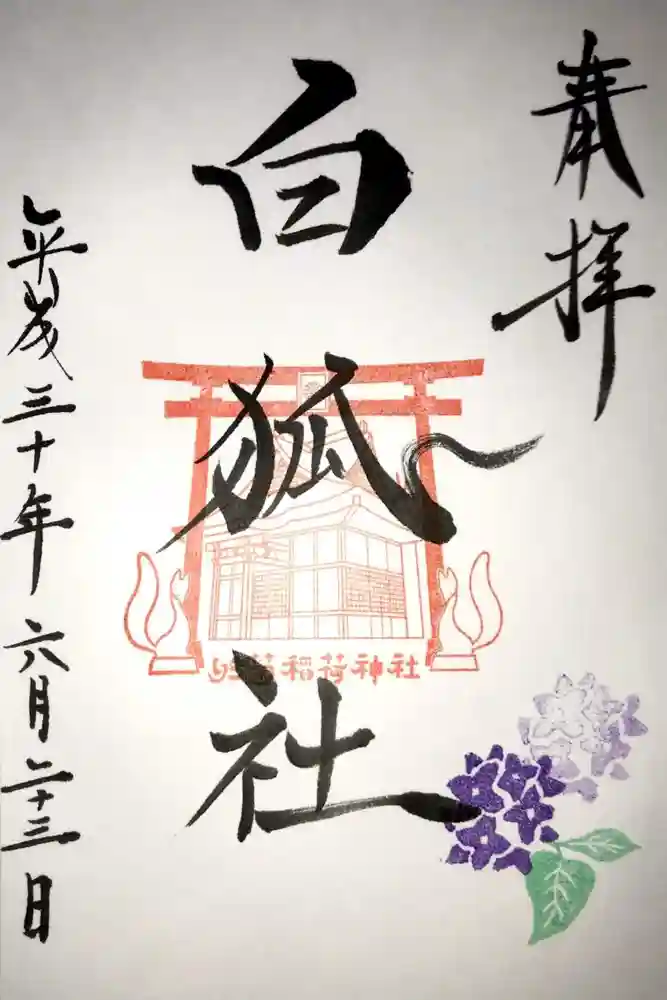 奉拝
白狐社
稲荷神社
平成三十年六月二十三日